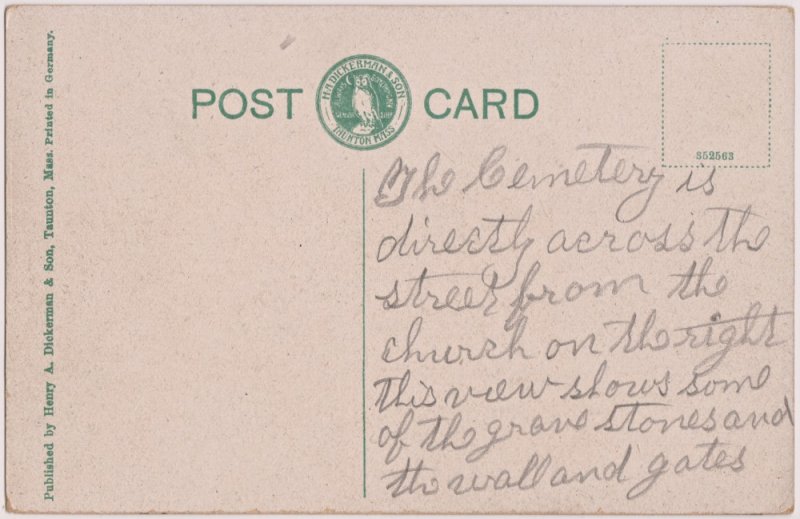 Published by Henry A. Dickerman & Son, Taunton, Mass. Printed in Germany.
POST CARD
H.A. DICKERMAN & SON
TAUNTON MASS
S52563
The Cemetery is
directly across the
street from the
church on the right
this view shows some
of the grave stones and
the wall and gates